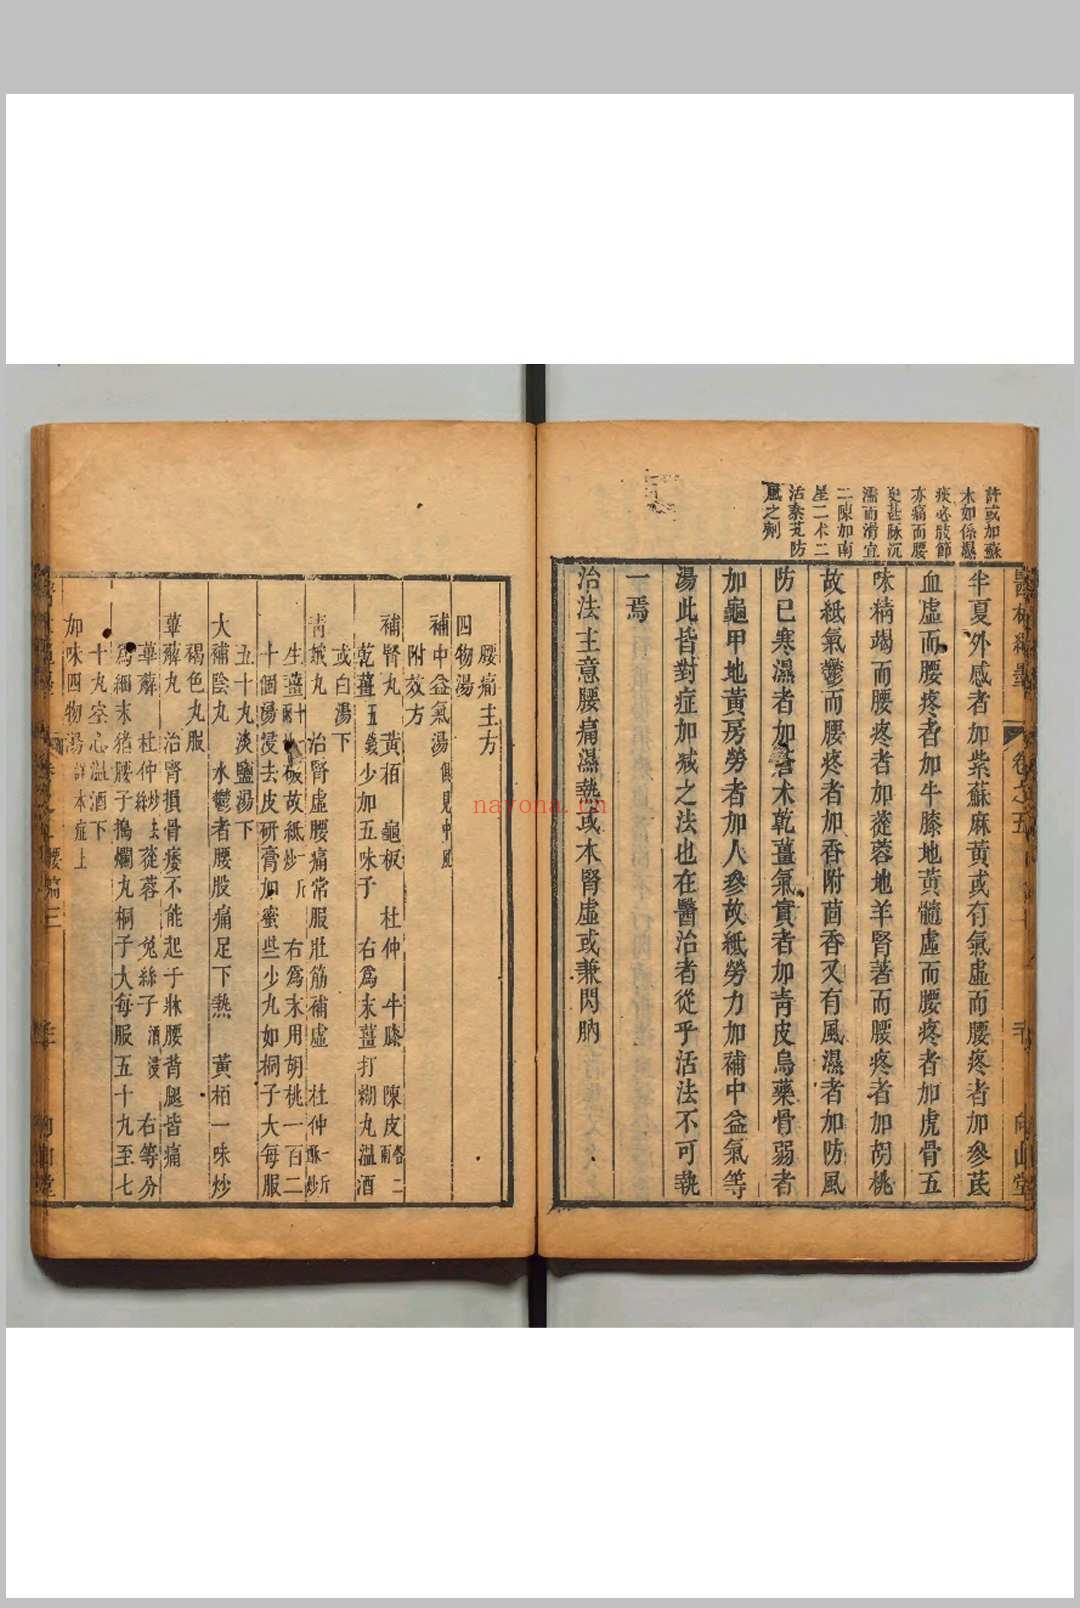 許或加蘇
木如係濕
痰必肢節
亦痛而腰
更甚脉沉
濡而滑宜
二陳加南
星二术二
活秦艽防
風之劑
半夏外感者加紫蘇麻黄或有氣虛而腰疼者加參芪
血虛而腰疼者加牛膝地黄髓虛而腰疼者加虎骨五
味精竭而腰疼者加蓯蓉地羊腎著而腰疼者加胡桃
故紙氣鬱而腰疼者加香附茴香又有風濕者加防風
防已寒濕者加蒼术乾薑氣實者加青皮烏藥骨弱者
加龜甲地黄房勞者加人參故紙勞力加補中益氣等
湯此皆對症加减之法也在醫治者從乎活法不可執
一焉
治法主意腰痛濕熱或本腎虛或兼閃肭
腰痛主方
四物湯
補中益氣湯 俱見中風
附效方
補腎丸 黄栢 龜板 杜仲 牛膝 陳皮各二兩
乾薑五錢 少加五味子 右爲末薑打糊丸溫酒
或白湯下
青娥丸 治腎虛腰痛常服壯筋補虛 杜仲一斤酥炒
生薑十兩 破故紙一斤炒 右爲末用胡桃一百二
十個湯浸去皮研膏加蜜些少丸如桐子大每服
五十丸淡鹽湯下
大補陰丸 水鬱者腰股痛足下熱 黄栢一味炒
褐色丸服
萆薢丸 治腎損骨痿不能起于牀腰背腿皆痛
萆薢 杜仲炒去絲 蓯蓉 兔絲子酒浸 右等分
爲細末猪腰子搗爛丸桐子大每服五十丸至七
十丸空心溫酒下
加味四物湯 詳本症上
醫林繩墨 卷之五 向山堂
nayona.cn